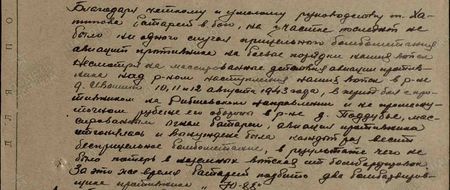 Благодаря четкому и умелому руководству т. Ха-
батареи в бою, на участке не
было ни одного случая прицельного бомбометания
авиации противника на боевые порядки наших войск
несмотря на массированные действия авиации против-
ника над р-ном наступления наших войск в р-не
д. 10, 11 и 12 августа 1943 года, в период боя с про-
тивником на направлении и на промежу-
точном рубеже его обороны в р-не д. Поддубье, мас-
сированным огнем батареи, авиация противника
и вынуждена была каждый раз вести
бесприцельное бомбометание, в результате чего не
было потерь в наземных войсках от бомбардировок.
За это же время батареей подбито два бомбардиров-
щика противника "Ю-88"
ДЛЯ ПО